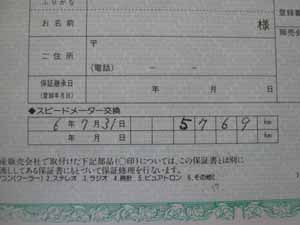 ふりがな
お名前 様
登録番
販売会
ご住所 〒
(電話) － －
保証継承日
(登録年月日) 年 月 日
◆スピードメーター交換
6年 7月 31日 5 7 6 9 km
年 月 日 km
産販売会社で取付けた下記部品(○印)については、この保証書とは別に
添付してある保証書にもとづいて保証修理を行ないます。
1.(クーラー) 2.ステレオ 3.ラジオ 4.時計 5.ピュアトロン 6.その他(